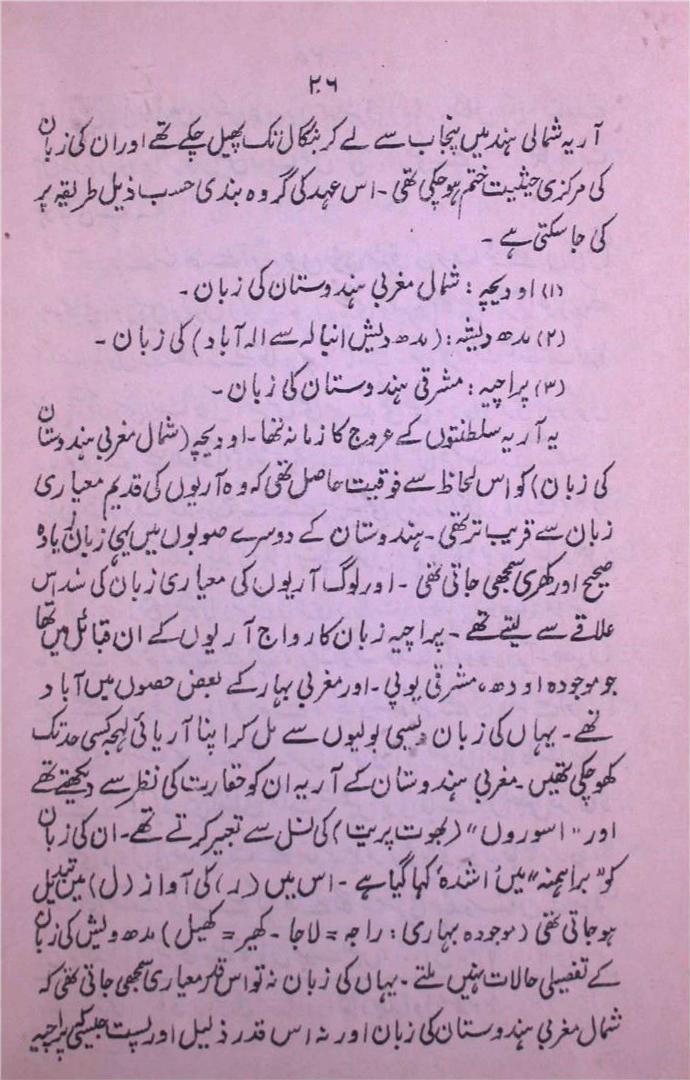 ۲۶
آریہ شمالی ہند میں پنجاب سے لے کر بنگال تک پھیل چکے تھے اور ان کی زبان
کی مرکزی حیثیت ختم ہو چکی تھی ۔ اس عہد کی گروہ بندی حسب ذیل طریقہ پر
کی جا سکتی ہے ۔
(۱) اودیچیہ : شمال مغربی ہندوستان کی زبان ۔
(۲) مدھ دیشیہ : (مدھ دیش انبالہ سے الہ آباد) کی زبان ۔
(۳) پراچیہ : مشرقی ہندوستان کی زبان ۔
یہ آریہ سلطنتوں کے عروج کا زمانہ تھا ۔ اودیچیہ (شمال مغربی ہندوستان
کی زبان) کو اس لحاظ سے فوقیت حاصل تھی کہ وہ آریوں کی قدیم معیاری
زبان سے قریب تر تھی ۔ ہندوستان کے دوسرے صوبوں میں یہی زبان زیادہ
صحیح اور کھری سمجھی جاتی تھی ۔ اور لوگ آریوں کی معیاری زبان کی سند اس
علاقے سے لیتے تھے ۔ پراچیہ زبان کا رواج آریوں کے ان قبائل میں تھا
جو موجودہ اودھ، مشرقی یوپی ۔ اور مغربی بہار کے بعض حصوں میں آباد
تھے ۔ یہاں کی زبان دیسی بولیوں سے مل کر اپنا آریائی لہجہ کسی حد تک
کھو چکی تھیں ۔ مغربی ہندوستان کے آریہ ان کو حقارت کی نظر سے دیکھتے تھے
اور "اسوروں" (بھوت پریت) کی نسل سے تعبیر کرتے تھے ۔ ان کی زبان
کو "براہمنہ" میں اشدہ کہا گیا ہے ۔ اس میں (ر) کی آواز (ل) میں تبدیل
ہو جاتی تھی (موجودہ بہاری : راجہ = لاجا ۔ کھیر = کھیل) مدھ ویش کی زبان
کے تفصیلی حالات نہیں ملتے ۔ یہاں کی زبان نہ تو اس قدر معیاری سمجھی جاتی تھی کہ
شمال مغربی ہندوستان کی زبان اور نہ اس قدر ذلیل اور پست جیسی کہ پراچیہ